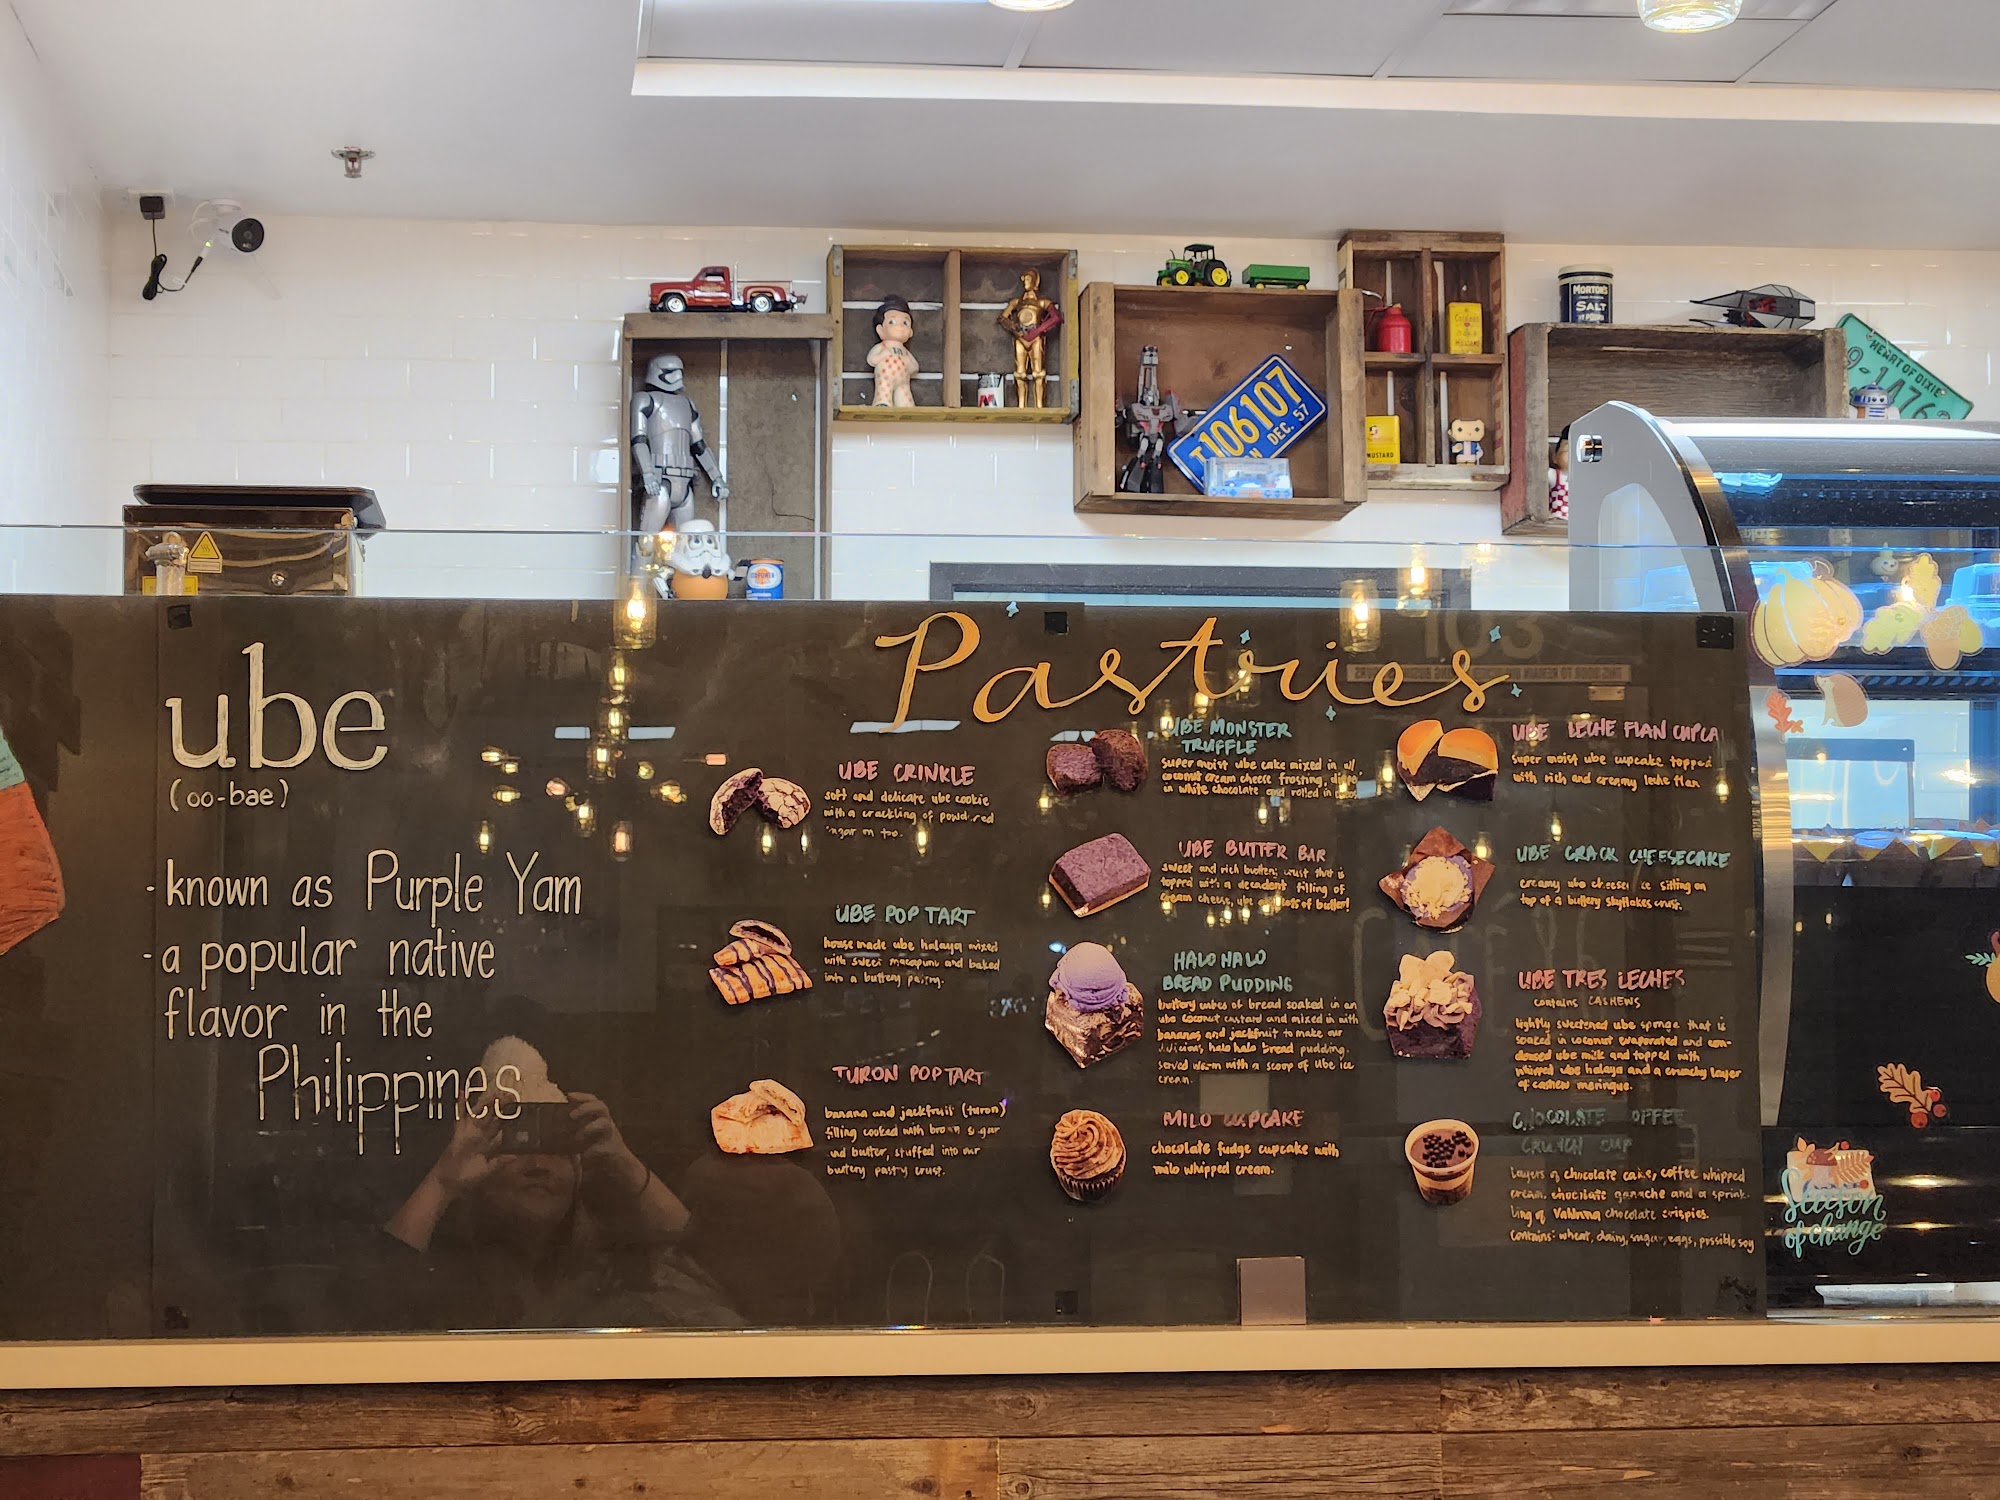 MORTON'S
SALT
HEART OF DIXIE
T106107
DEC. 57
MUSTARD
ube
(oo-bae)
· known as Purple Yam
· a popular native
flavor in the
Philippines
Pastries
UBE CRINKLE
soft and delicate ube cookie
with a crackling of powdered
sugar on top.
UBE POP TART
house made ube halaya mixed
with sweet macapuno and baked
into a buttery pastry.
TURON POP TART
banana and jackfruit (turon)
filling cooked with brown sugar
and butter, stuffed into our
buttery pastry crust.
UBE MONSTER
TRUFFLE
super moist ube cake mixed in w/
coconut cream cheese frosting, dipped
in white chocolate and rolled in
UBE BUTTER BAR
sweet and rich buttery crust that is
topped with a decadent filling of
cream cheese, ube and lots of butter!
HALO HALO
BREAD PUDDING
buttery cubes of bread soaked in an
ube coconut custard and mixed in with
bananas and jackfruit to make our
delicious halo halo bread pudding.
served warm with a scoop of ube ice
cream.
MILO CUPCAKE
chocolate fudge cupcake with
milo whipped cream.
UBE LECHE FLAN CUPCA
super moist ube cupcake topped
with rich and creamy leche flan
UBE CRACK CHEESECAKE
creamy ube cheesecake sitting on
top of a buttery skyflakes crust.
UBE TRES LECHES
contains CASHEWS
lightly sweetened ube sponge that is
soaked in coconut evaporated and con-
densed ube milk and topped with
whipped ube halaya and a crunchy layer
of cashew meringue.
CHOCOLATE COFFEE
CRUNCH CUP
Layers of chocolate cake, coffee whipped
cream, chocolate ganache and a sprink-
ling of Valrhona chocolate crispies.
Contains: wheat, dairy, sugar, eggs, possible soy
Season
of change